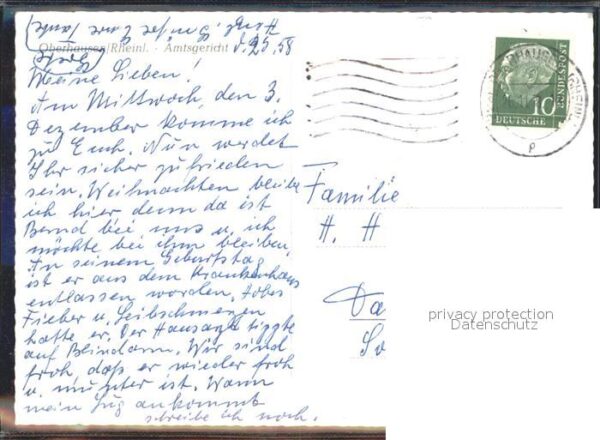 Oberhausen/Rheinl. - Amtsgericht
d. 25. 58
Meine Lieben!
Am Mittwoch, den 3.
Dezember komme ich
zu Euch. Nun werdet
Ihr sicher zufrieden
sein. Weihnachten bleibe
ich hier denn da ist
Bernd bei uns u. ich
möchte bei ihm bleiben.
An seinem Geburtstag
ist er aus dem Krankenhaus
entlassen worden. Hohes
Fieber u. Leibschmerzen
hatte er. Der Hausarzt tippte
auf Blinddarm. Wir sind
froh, daß er wieder froh
u. munter ist. Wann
mein Zug ankommt
schreibe ich noch.
Herzl. Grüße Eure
10
DEUTSCHE
BUNDESPOST
Familie
H. H
Da
So
privacy protection
Datenschutz